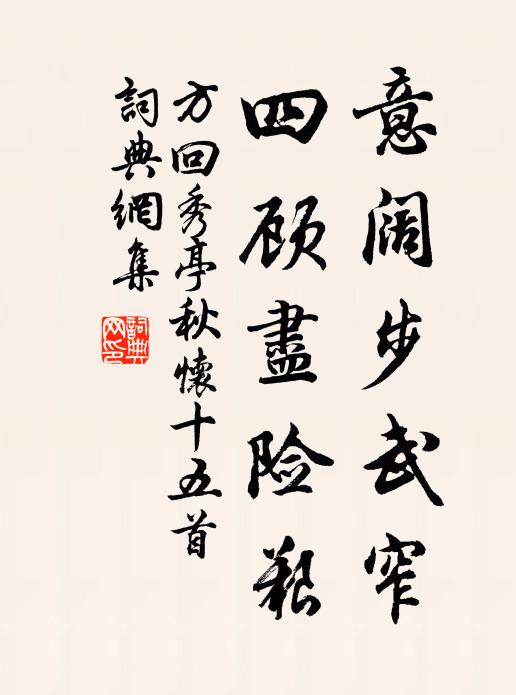 意阔步武窄
四顾盡险艱
方回秀亭秋懷十五首
詞典網集
詞典
网印